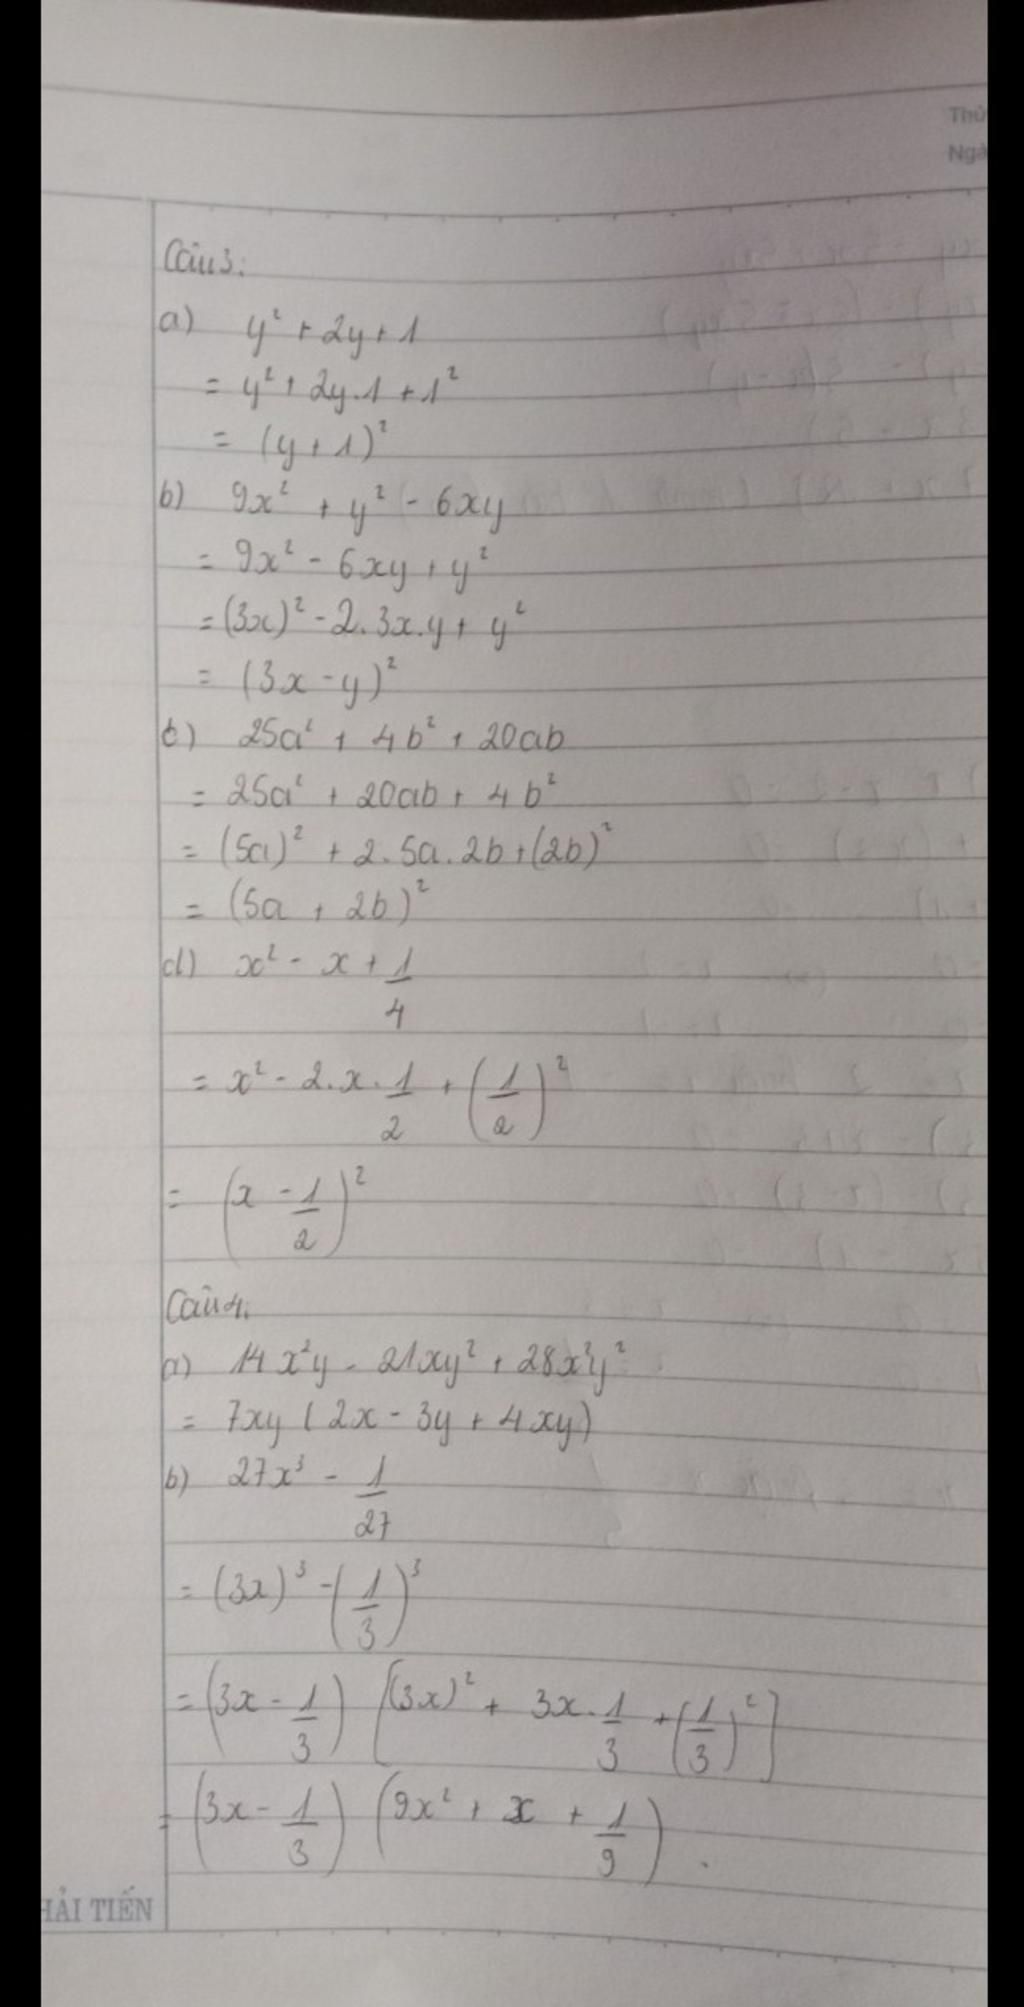 Thứ
Ngà
Câu 3:
a) y² + 2y + 1
= y² + 2y.1 + 1²
= (y + 1)²
b) 9x² + y² - 6xy
= 9x² - 6xy + y²
= (3x)² - 2.3x.y + y²
= (3x - y)²
c) 25a² + 4b² + 20ab
= 25a² + 20ab + 4b²
= (5a)² + 2.5a.2b + (2b)²
= (5a + 2b)²
d) x² - x + 1/4
= x² - 2.x.1/2 + (1/2)²
= (x - 1/2)²
Câu 4.
a) 14x²y - 21xy² + 28x²y²
= 7xy (2x - 3y + 4xy)
b) 27x³ - 1/27
= (3x)³ - (1/3)³
= (3x - 1/3) [(3x)² + 3x.1/3 + (1/3)²]
= (3x - 1/3) (9x² + x + 1/9).
HẢI TIẾN